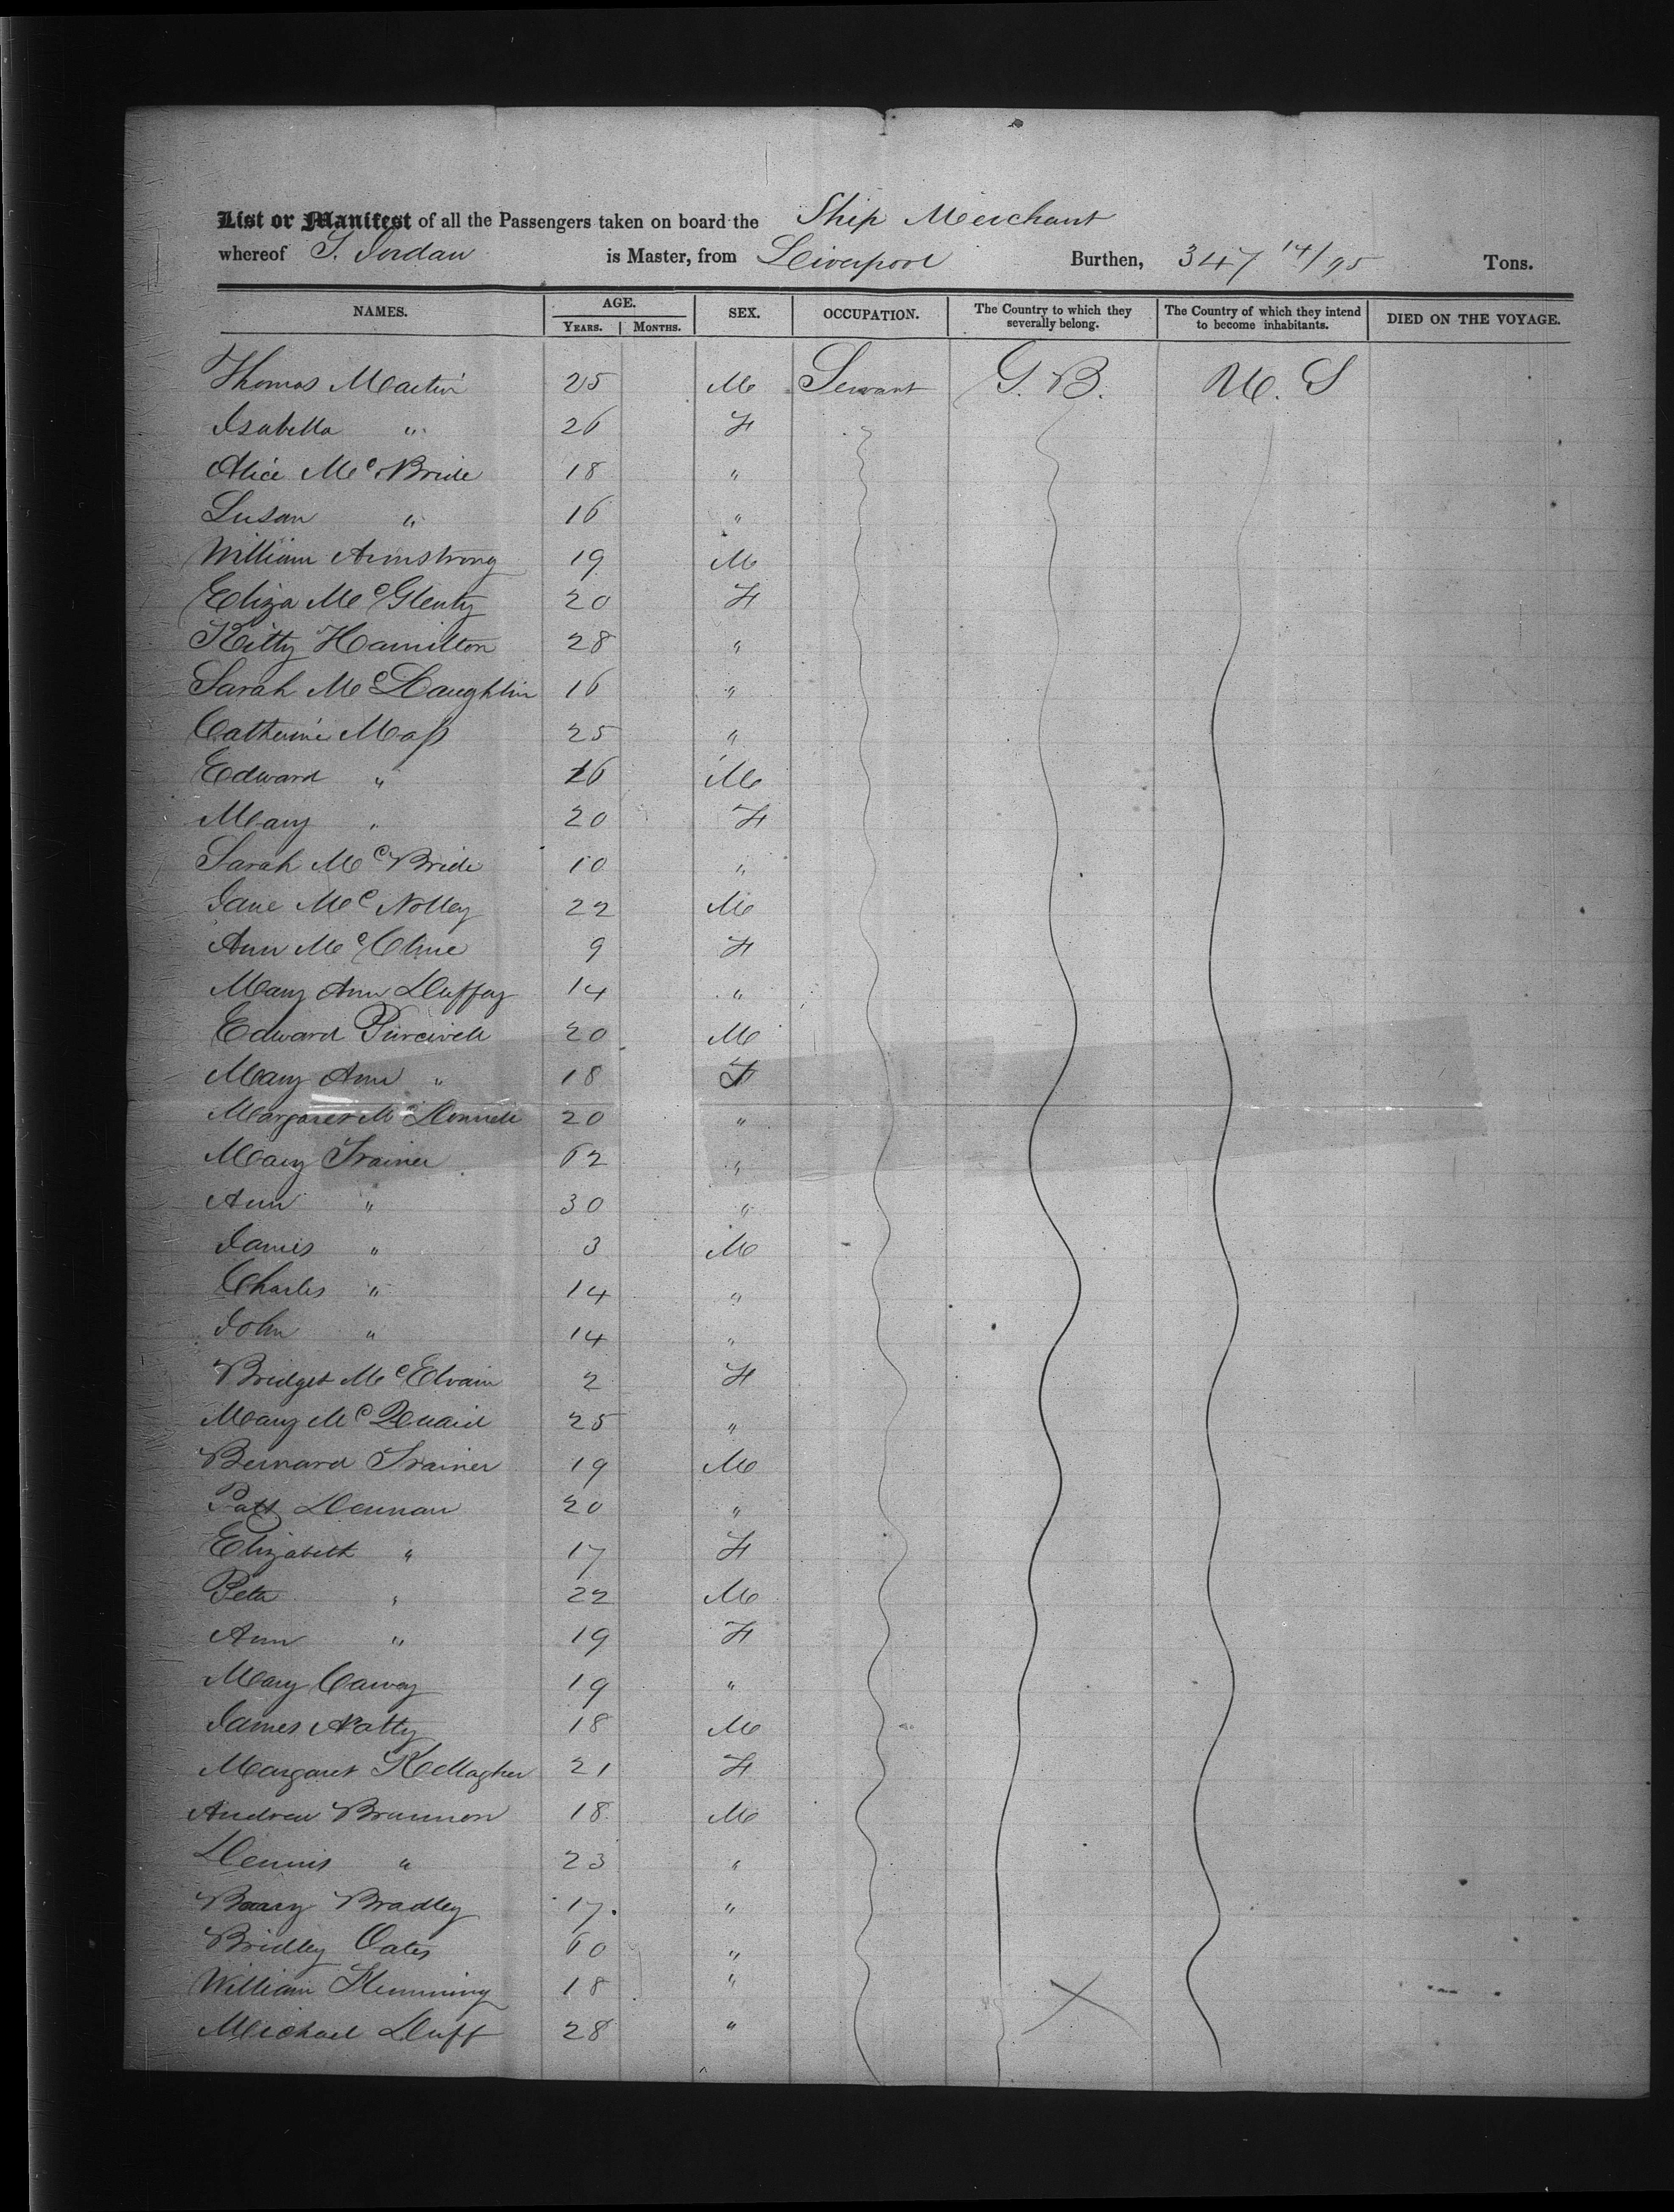 List or Manifest of all the Passengers taken on board the Ship Merchant
whereof T. Jordan is Master, from Liverpool Burthen, 347 14/95 Tons.
NAMES. AGE. SEX. OCCUPATION. The Country to which they severally belong. The Country of which they intend to become inhabitants. DIED ON THE VOYAGE.
YEARS. MONTHS.
Thomas Martin 25 M Servant G. B. U. S
Isabella " 26 F
Alice McBride 18 "
Susan " 16 "
William Armstrong 19 M
Eliza McGlenty 20 F
Kitty Hamilton 28 "
Sarah McLaughlin 16 "
Catherine Mass 25 "
Edward " 26 M
Mary " 20 F
Sarah McBride 10 "
Jane McNolley 22 M
Ann McClure 9 F
Mary Ann Duffay 14 "
Edward Purcivell 20 M
Mary Ann " 18 F
Margaret McDonnell 20 "
Mary Trainer 62 "
Ann " 30 "
James " 3 M
Charles " 14 "
John " 14 "
Bridget McElvain 2 F
Mary McQuaid 25 "
Bernard Trainer 19 M
Patt Dennan 20 "
Elizabeth " 17 F
Peter " 22 M
Ann " 19 F
Mary 19 "
James Natty 18 M
Margaret Kellagher 21 F
Andrew Brannon 18 M
Dennis " 23 "
Bradley 17 "
Bridley Oates 60 "
William Flemming 18 "
Michael Duff 28 "